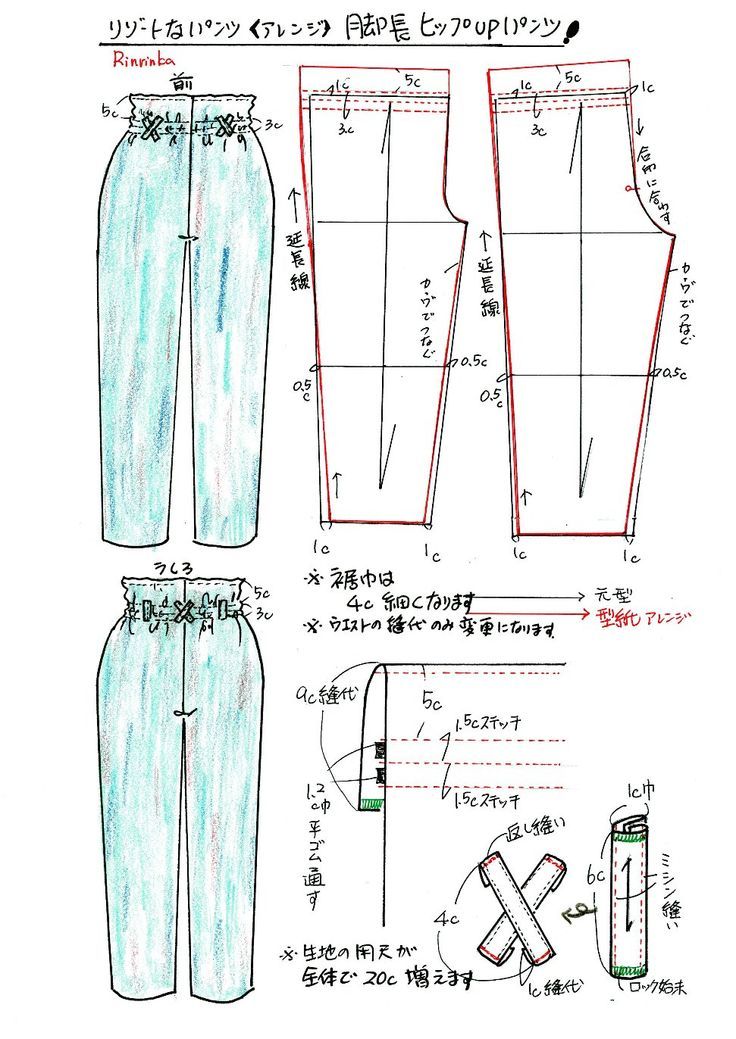 リゾートなパンツ《アレンジ》脚長ヒップUPパンツ!
Rinrinka
前
5c
3c
1c
5c
3c
↑延長線
カーヴでつなぐ
0.5c
0.5c
1c
1c
5c
1c
3c
↓合印に合わす
↑延長線
カーヴでつなぐ
0.5c
0.5c
1c
1c
うしろ
5c
3c
※裾巾は
4c細くなります
→元型
→型紙アレンジ
※ウエストの縫代のみ変更になります
9c縫代
5c
1.5cステッチ
1.5cステッチ
1.2c巾平ゴム通す
返し縫い
4c
1c縫代
1c巾
6c
ミシン縫い
ロック始末
※生地の用尺が
全体で20c増えます